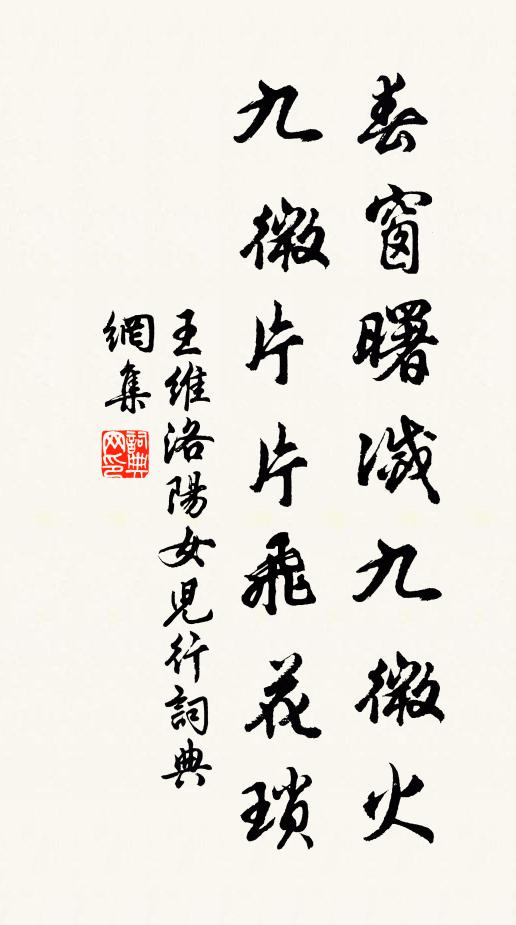 春窗曙滅九微火
九微片片飛花瑣
王維洛陽女児行詞典
網集
詞典网印